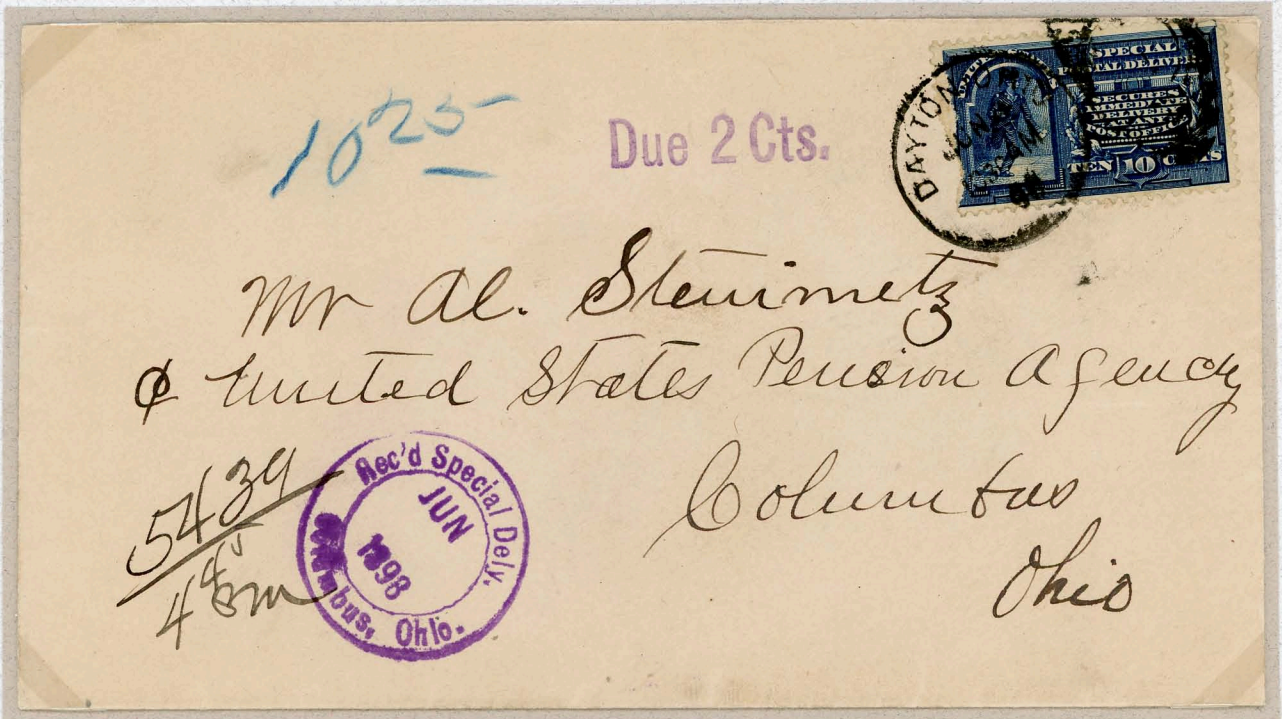 10 25
Due 2 Cts.
DAYTON OHIO
JUN
AM
98
SPECIAL
POSTAL DELIVERY
SECURES
IMMEDIATE
DELIVERY
AT ANY
POST OFFICE
TEN 10 CENTS
Mr Al. Steinmetz
¢ United States Pension Agency
Columbus
Ohio
5439
4 45 PM
Rec'd Special Dely.
JUN
1898
Columbus, Ohio.